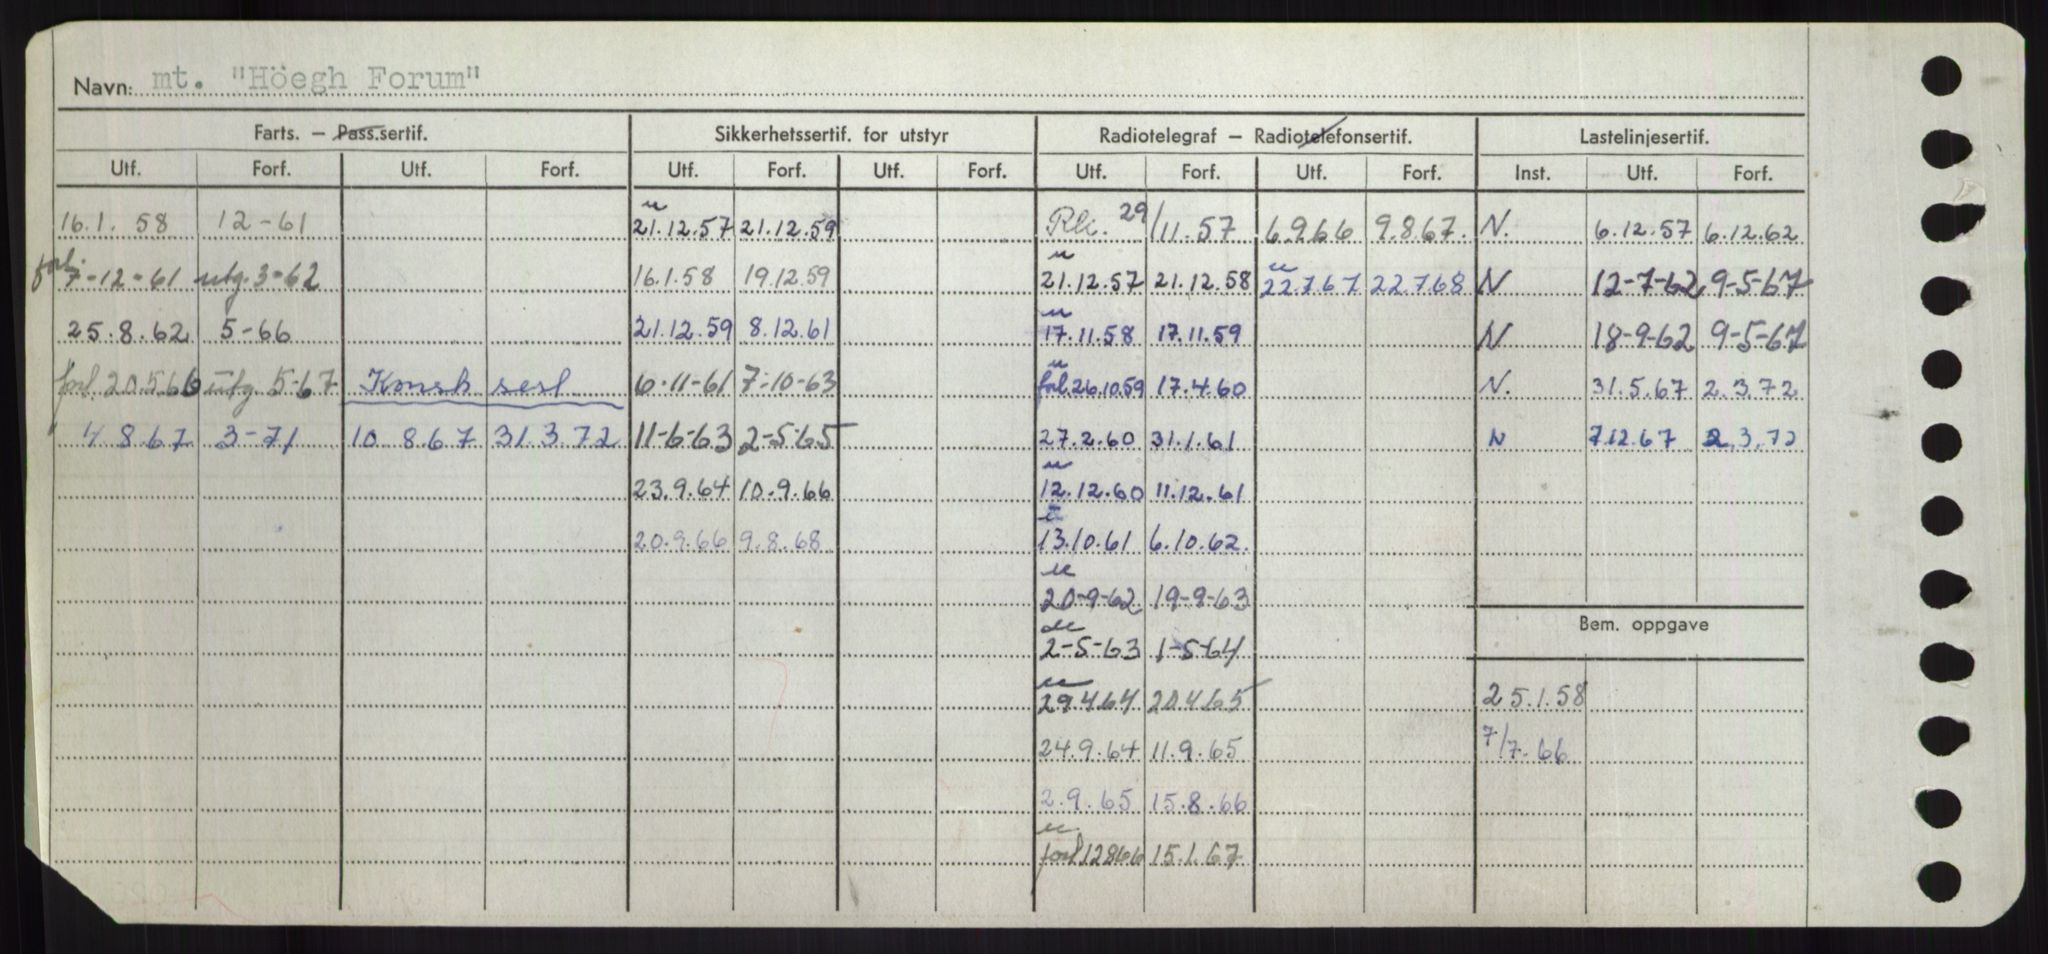 Navn: mt. "Höegh Forum"
Farts. — Pass.sertif. Sikkerhetssertif. for utstyr Radiotelegraf — Radiotelefonsertif. Lastelinjesertif.
Utf. Forf. Utf. Forf. Utf. Forf. Utf. Forf. Utf. Forf. Utf. Forf. Inst. Utf. Forf.
16.1. 58 12-61 u 21.12.57 21.12.59 29/11.57 6.9.66 9.8.67. N. 6.12.57 6.12.62
forl. 7-12-61 utg. 3-62 16.1.58 19.12.59 u 21.12.57 21.12.58 u 22.7.67 22.7.68 N 12-7-62 9-5-67
25.8.62 5-66 21.12.59 8.12.61 u 17.11.58 17.11.59 N 18-9-62 9-5-67
forl. 20.5.66 utg. 5-67 Konsk sesl 6-11-61 7-10-63 u forl. 26.10.59 17.4.60 N. 31.5.67 2.3.72
4.8.67 3-71 10.8.67 31.3.72 11-6-63 2-5-65 27.2.60 31.1.61 N 7.12.67 2.3.72
23.9.64 10.9.66 u 12.12.60 11.12.61
20.9.66 9.8.68 u 13.10.61 6.10.62.
u 20-9-62 19-9-63
Bem. oppgave
u 2-5-63 1-5-64
u 29.4.64 20.4.65 25.1.58
24.9.64 11.9.65 7/7.66
2.9.65 15.8.66
u forl 12866 15.1.67